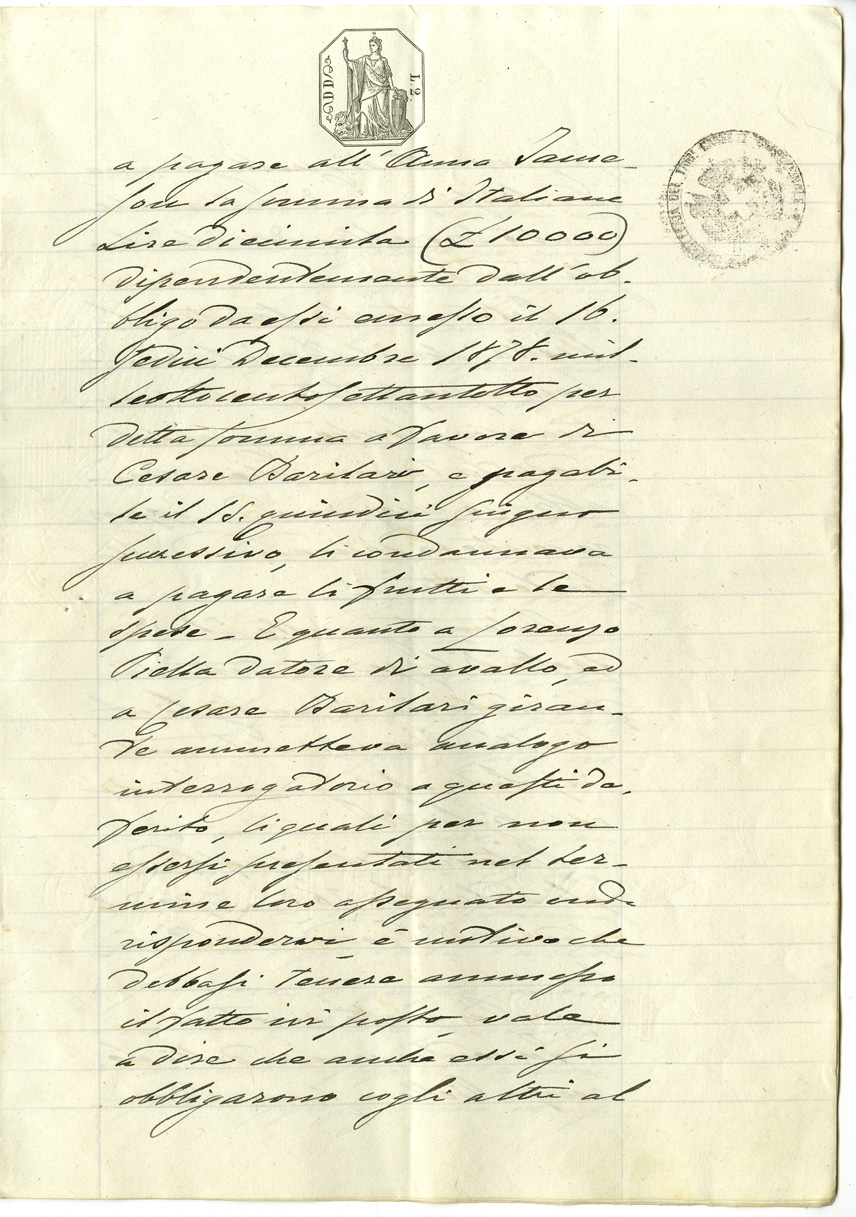 L. 2.
DUE
a pagare all' Anna Jame-
son la somma di Italiane
Lire diecimila (£ 10000)
dipendentemente dall' ob-
bligo da essi emesso il 16.
sedici Decembre 1878. mil-
leottocentosettantotto per
detta somma a favore di
Cesare Barilari, e pagabi-
le il 15. quindici Giugno
successivo, li condannava
a pagare li frutti e le
spese _ E quanto a Lorenzo
Piella datore di avallo, ed
a Cesare Barilari giran-
te ammetteva analogo
interrogatorio a questi de-
ferito, li quali per non
essersi presentati nel ter-
mine loro assegnato onde
rispondervi, è motivo che
debbasi tenere ammesso
il fatto ivi posto, vale
a dire che anche essi si
obbligarono cogli altri al